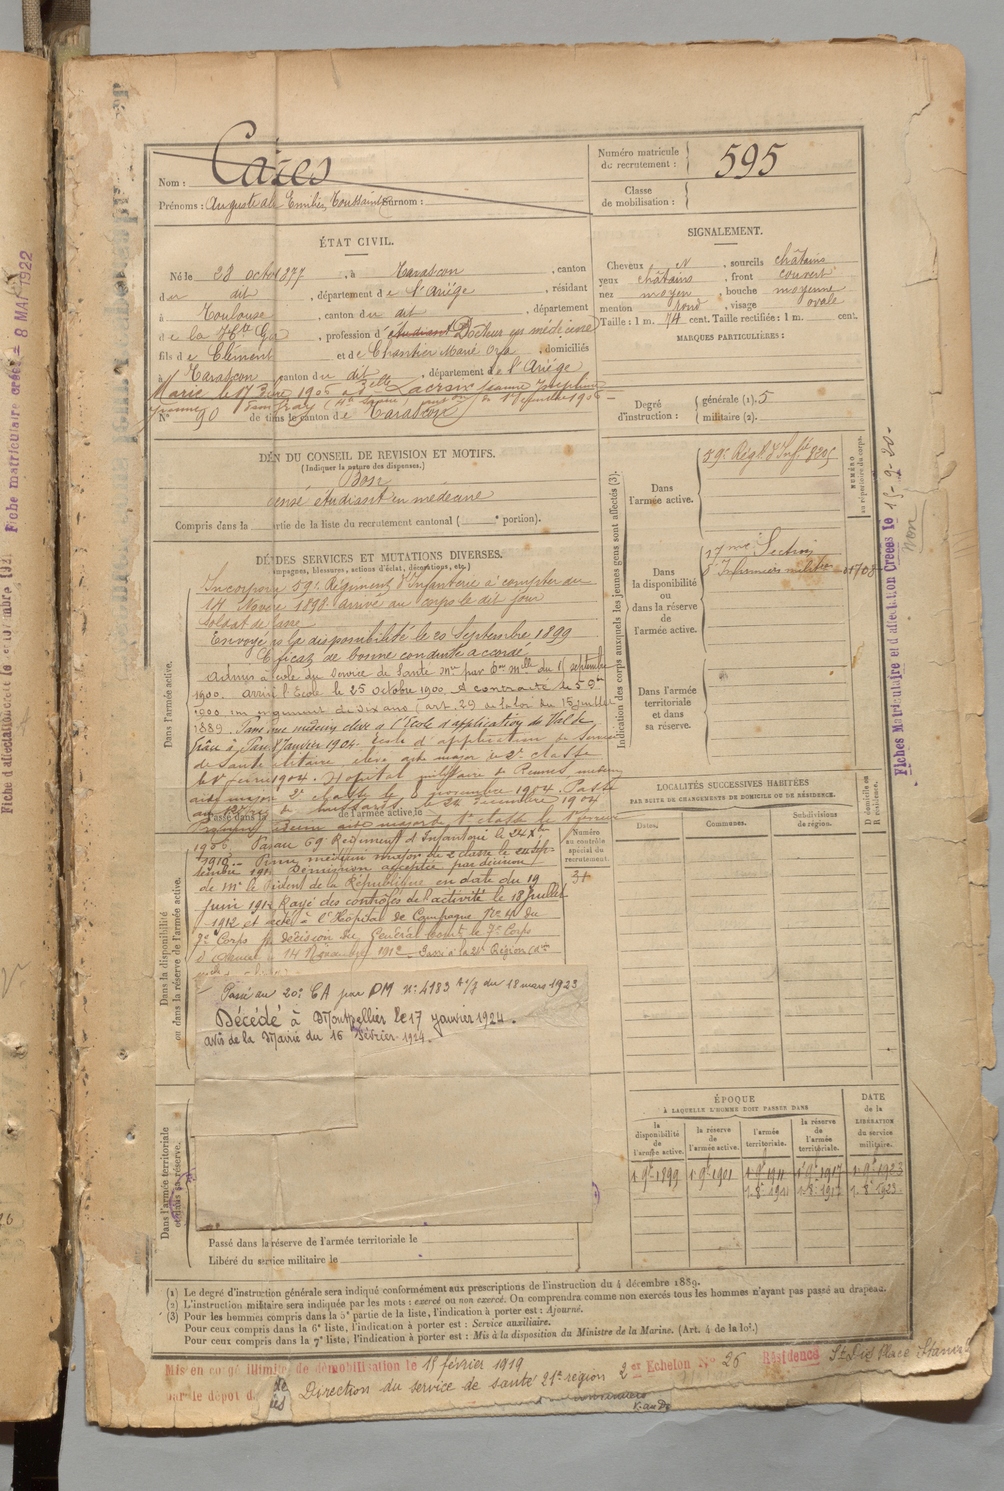 Nom : Cazes
Prénoms : Auguste Emilien Toussaint Surnom :
Numéro matricule du recrutement : 595
Classe de mobilisation :
ÉTAT CIVIL.
Né le 28 octo 1877, à Tarascon, canton
du dit, département de l'Ariège, résidant
à Toulouse, canton du dit, département
de la Hte Ga, profession d'étudiant Docteur en médecine
fils de Clément et de Chantier Marie, domiciliés
à Tarascon canton du dit, département de l'Ariège
Marié le 17 1905 à Delle Lacroix Jeanne Joséphine
Yvonne
N° 90 de ti canton de Tarascon
SIGNALEMENT.
Cheveux N, sourcils châtains
yeux châtains, front couvert
nez moyen, bouche moyenne
menton rond, visage ovale
Taille : 1 m. 74 cent. Taille rectifiée : 1 m. cent.
MARQUES PARTICULIÈRES :
Degré d'instruction : générale (1). 5
militaire (2).
DÉ N DU CONSEIL DE REVISION ET MOTIFS.
(Indiquer la nature des dispenses.)
Bon
pensé étudiant en médecine
Compris dans la rtie de la liste du recrutement cantonal ( e portion).
DÉ DES SERVICES ET MUTATIONS DIVERSES.
ampagnes, blessures, actions d'éclat, décorations, etc.)
Incorpor 59e Régiment d'Infanterie à compter du
14 Novre 1898 arrivé au corps le dit jour
soldat de classe
Envoyé la disponibilité le 20 Septembre 1899
C ficat de bonne conduite accordé
Admis à cole du Service de Santé Mre par Don Mlle du 11 septembre
1900. Arriv l'Ecole le 25 Octobre 1900. A contracté le
1900 un engagement de six ans (art. 29 de la loi du 15 juillet
1889. Passé médecin élève à l'Ecole d'application du Val de
Grâce à Janvier 1904. école d'application du Service
de Santé militaire, élève aide major de 2e classe
le 1er février 1904. Hôpital militaire de Rennes médecin
aide major 2e classe le 2 novembre 1904. Passé
au 12e de hussards le 24 décembre 1904
Passé dans la de l'armée active le
aide major de 1e classe le 1er février
1906 Passé au 69 Régiment d'Infanterie le 24 Xbre
1910 médecin major de 2e classe le
tembre 1911 Démission acceptée par décision
de Mr le Président de la République en date du 19
juin 1912 Rayé des contrôles de l'activité le 18 Juillet
1912 et à l'Hôpital de Campagne No 4 du
7e Corps décision du Général Comdt le 7e Corps
14 Novembre 1912 Passé à la 21e Région
Passé au 20e CA par DM n° 4183 du 18 mars 1923
Décédé à Montpellier le 17 janvier 1924.
avis de la Mairie du 16 Février 1924.
Passé dans la réserve de l'armée territoriale le
Libéré du service militaire le
Dans l'armée active.
Dans la disponibilité ou dans la réserve de l'armée active.
Dans l'armée territoriale et dans sa réserve.
Numéro au contrôle spécial du recrutement.
31
Indication des corps auxquels les jeunes gens sont affectés (3).
NUMÉRO au répertoire du corps.
Dans l'armée active.
59e Régt d'Infie 8205
Dans la disponibilité ou dans la réserve de l'armée active.
17me Section
d'Infirmiers militres
Dans l'armée territoriale et dans sa réserve.
LOCALITÉS SUCCESSIVES HABITÉES
PAR SUITE DE CHANGEMENTS DE DOMICILE OU DE RÉSIDENCE.
Dates.
Communes.
Subdivisions de région.
D domicile ou R résidence.
ÉPOQUE
À LAQUELLE L'HOMME DOIT PASSER DANS
DATE de la LIBÉRATION du service militaire.
la disponibilité de l'armée active.
la réserve de l'armée active.
l'armée territoriale.
la réserve de l'armée territoriale.
1 9e 1899 1 9e 1901 1 9e 1911 1 9e 1917 1 9e 1923
1. 8e 191 1. 8e 1917 1. 8e 1923
(1) Le degré d'instruction générale sera indiqué conformément aux prescriptions de l'instruction du 4 décembre 1889.
(2) L'instruction militaire sera indiquée par les mots : exercé ou non exercé. On comprendra comme non exercés tous les hommes n'ayant pas passé au drapeau.
(3) Pour les hommes compris dans la 5e partie de la liste, l'indication à porter est : Ajourné.
Pour ceux compris dans la 6e liste, l'indication à porter est : Service auxiliaire.
Pour ceux compris dans la 7e liste, l'indication à porter est : Mis à la disposition du Ministre de la Marine. (Art. 4 de la loi.)
Mis en congé illimité de démobilisation le 15 février 1919
par le dépôt d Direction du service de santé 21e région 2er Echelon No 26 Résidence St Dié Place Stanis
Fiches Matriculaire et d'affectation Créées le 15-9-20-
Fiche matriculaire créée - 8 MAI 1922